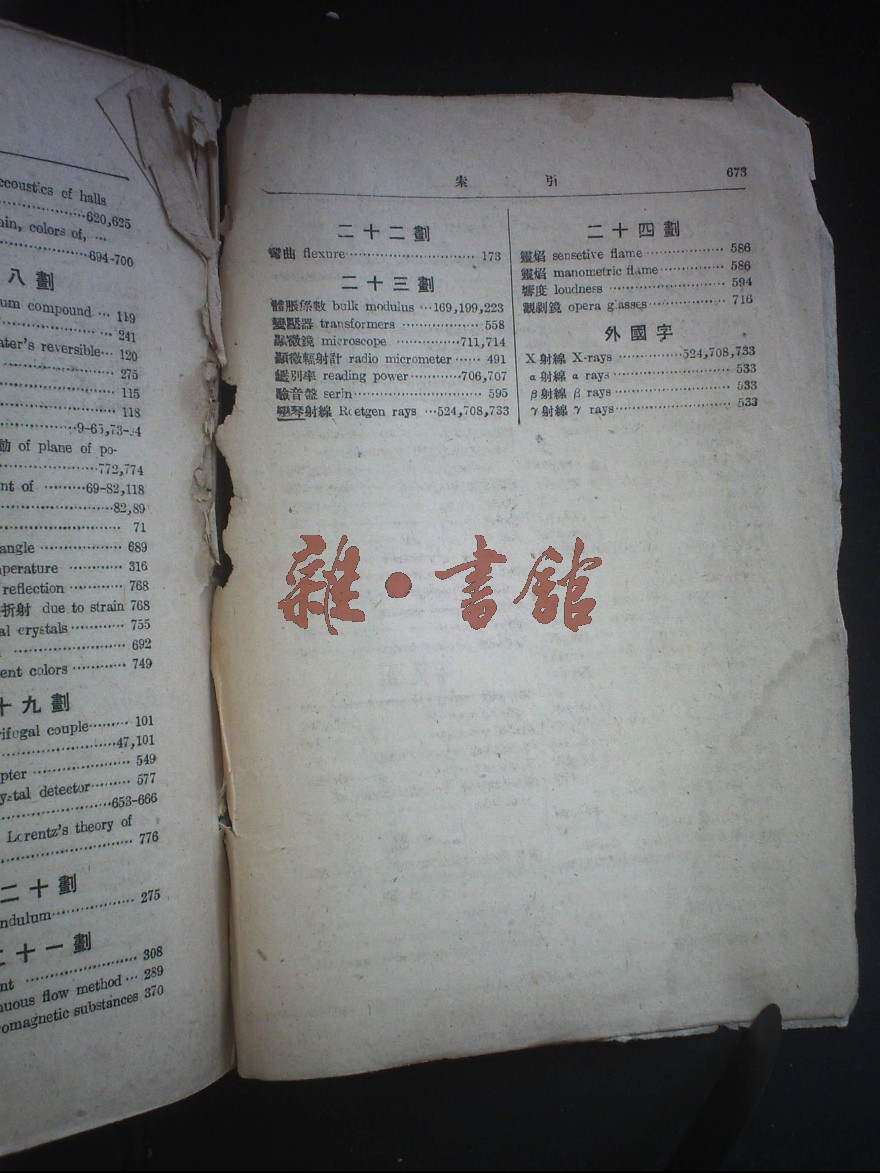 ccoustics of halls
620,625
ain, colors of, …
694-700
八劃
um compound … 119
241
ater's reversible… 120
275
115
118
9-65,73-
動 of plane of po-
772,774
nt of ………69-82,118
82,89
71
angle ………… 689
perature ………… 316
reflection ………… 768
折射 due to strain 768
al crystals………… 755
692
ent colors ………… 749
十九劃
rifugal couple……… 101
47,101
pter ……………… 549
ystal detector……… 577
653-666
Lorentz's theory of
776
二十劃
ndulum……………… 275
二十一劃
nt ……………… 308
nuous flow method … 289
romagnetic substances 370
索引
673
二十二劃
彎曲 flexure……………………… 173
二十三劃
體脹係數 bulk modulus …169,199,223
變壓器 transformers ……………… 558
顯微鏡 microscope ……………711,714
顯微輻射計 radio micrometer …… 491
鑑別率 reading power…………706,707
驗音盤 serin……………………… 595
變琴射線 Roetgen rays …524,708,733
二十四劃
靈焰 sensetive flame……………… 586
靈焰 manometric flame…………… 586
響度 loudness ……………………… 594
觀劇鏡 opera glasses……………… 716
外國字
X射線 X-rays ……………524,708,733
α射線 α rays……………………… 533
β射線 β rays……………………… 533
γ射線 γ rays……………………… 533
雜·書館